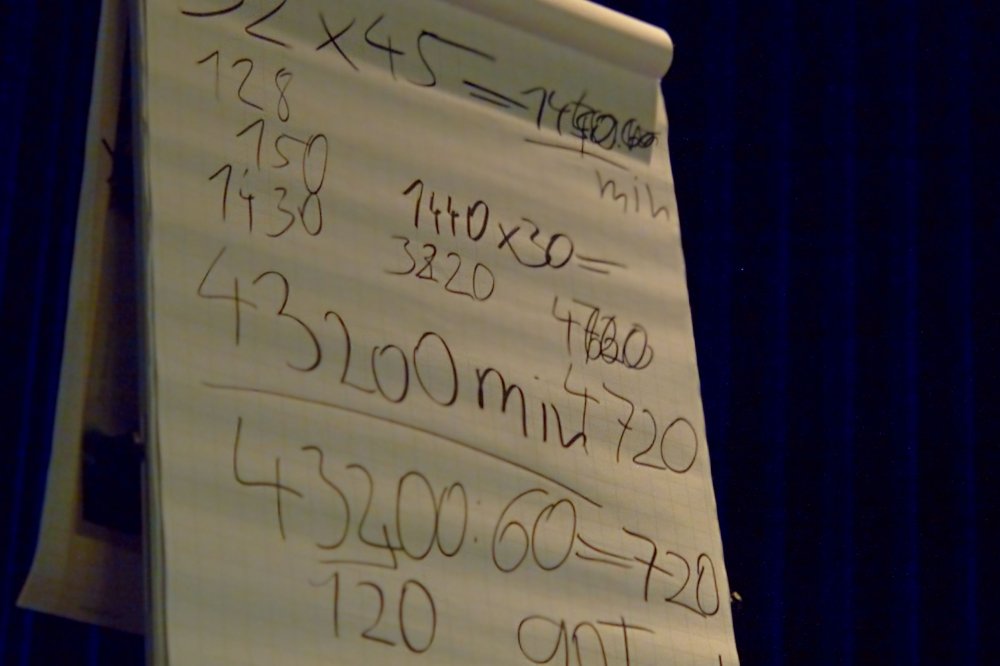 32 × 45 = 1440
128
min
150
1430
1440 × 30 =
3220
43200 min
4720
43200 : 60 = 720
120